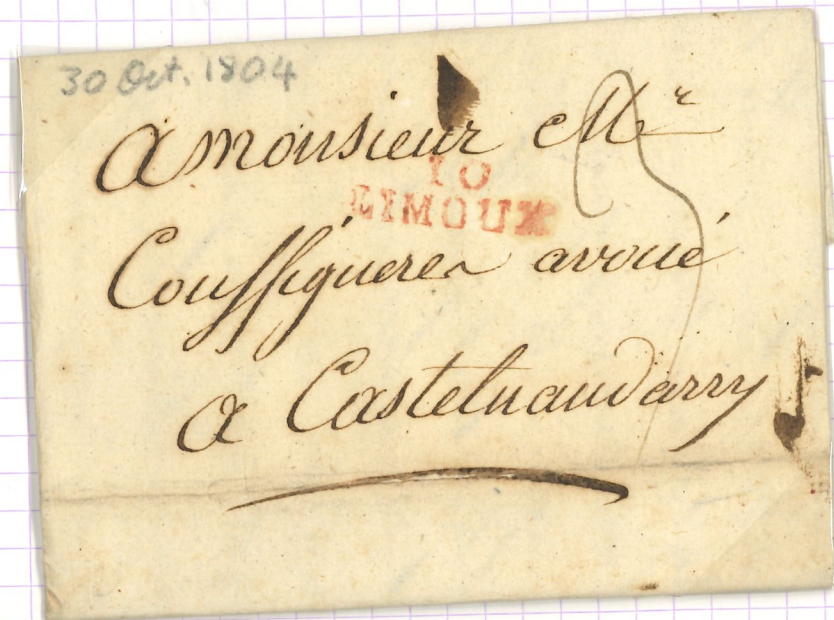 30 Oct. 1804
A monsieur Mr
10
LIMOUX
avoué
a Castelnaudarry